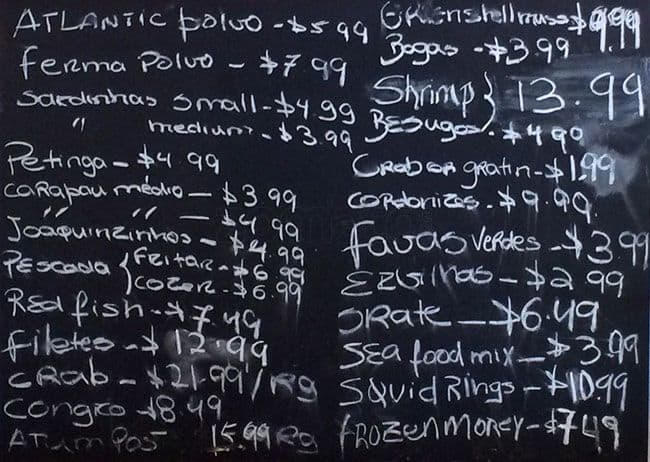 ATLANTIC polvo - $5 99
ferma Polvo - $7.99
Sardinhas Small - $4.99
" medium - $3.99
Petinga - $4 99
CARAPAU médio - $3 99
" " - $4 99
JOAQUINZINHOS - $4.99
PESCADA { FRITAR - $6 99
COZER - $6.99
Red fish - $7.49
Filetes - $12.99
CRAB - $21.99/Kg
CONGRO $8.49
ATUM POS 15.99 KG
GREENShell muss $9.99
Bogas - $3.99
Shrimp } 13.99
BESUGOS. $4 90
CRAB OR gratin - $1.99
CORDORNIZES. $9.99
favas VERDES - $3.99
EZBILHAS - $2 99
SKATE - $6.49
SEA food mix - $3.99
SQUID RINGS - $10.99
fROZEN MORCY - $7 49